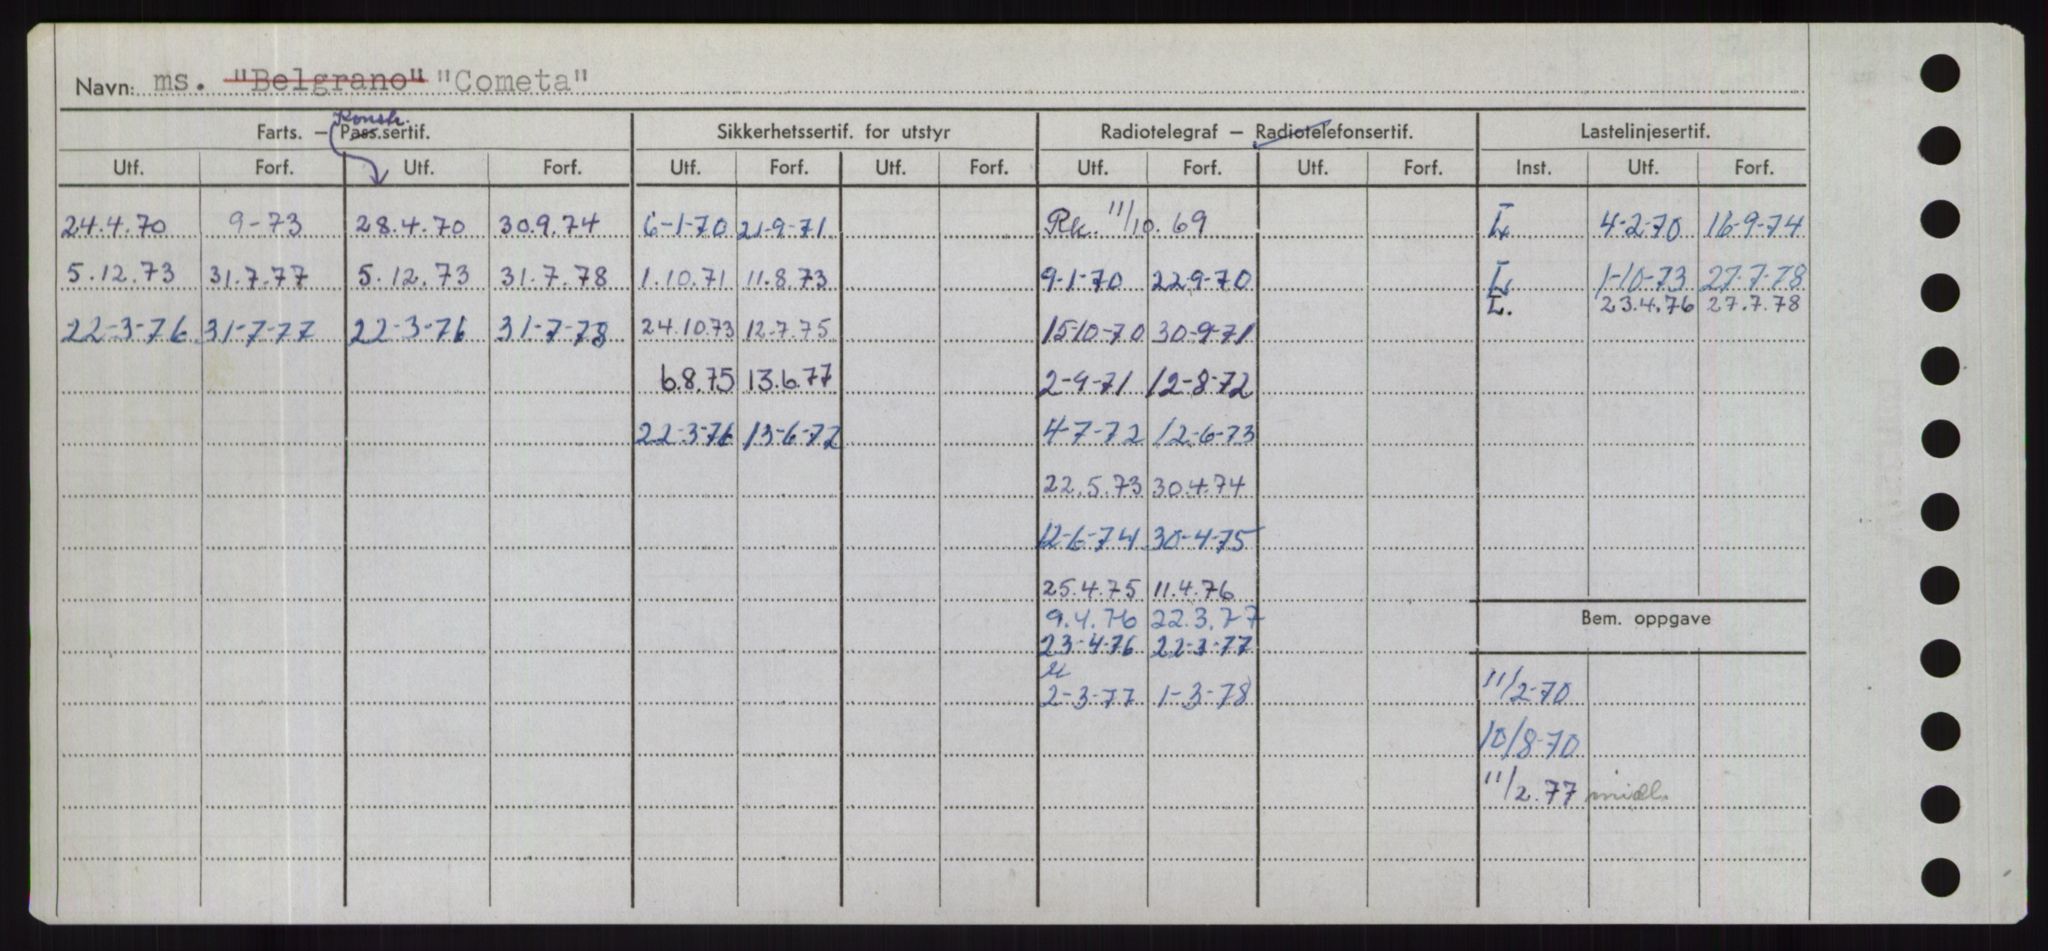 Navn: ms. "Belgrano" "Cometa"
Konstr.
Farts. – Pass.sertif. Sikkerhetssertif. for utstyr Radiotelegraf – Radiotelefonsertif. Lastelinjesertif.
Utf. Forf. Utf. Forf. Utf. Forf. Utf. Forf. Utf. Forf. Utf. Forf. Inst. Utf. Forf.
24.4.70 9-73 28.4.70 30.9.74 6-1-70 21-9-71 Rk. 11/10.69 L 4-2-70 16-9-74
5.12.73 31.7.77 5.12.73 31.7.78 1.10.71 11.8.73 9-1-70 22-9-70 L 1-10-73 27-7-78
L. 23.4.76 27.7.78
22-3-76 31-7-77 22-3-76 31-7-78 24.10.73 12.7.75 15-10-70 30-9-71
6.8.75 13.6.77 2-9-71 12-8-72
22-3-76 13-6-77 4-7-72 12-6-73
22.5.73 30.4.74
12-6-74 30-4-75
25.4.75 11.4.76
9.4.76 22.3.77
Bem. oppgave
23-4-76 22-3-77
2-3-77 1-3-78 11/2-70
10/8-70
11/2.77 midl.